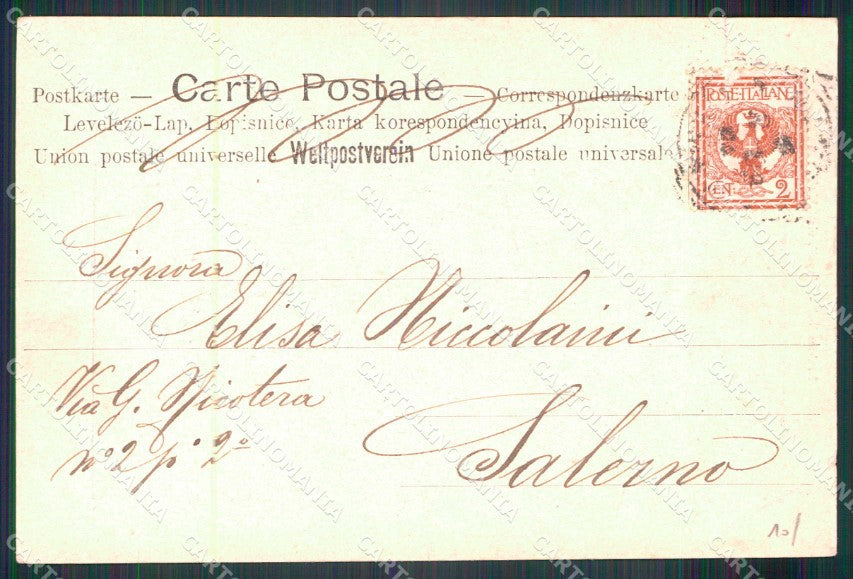 Postkarte — Carte Postale — Correspondenzkarte
Levelezö-Lap, Dopisnice, Karta korespondencyina, Dopisnice
Union postale universelle Weltpostverein Unione postale universale
POSTE ITALIANE
CEN. 2
Signora
Elisa Niccolaini
Via G. Nicotera
nº 2 pº 2º
Salerno
10/
CARTOLINOMANIA